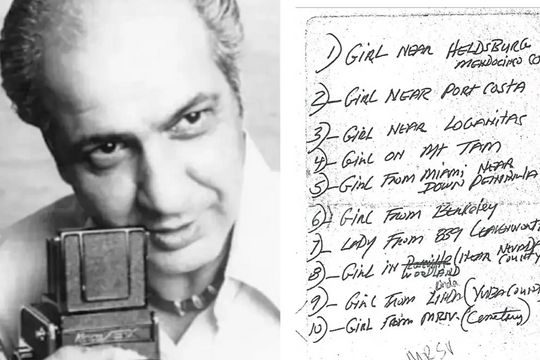 1) GIRL NEAR HELDSBURG
MENDOCINO CO
2-GIRL NEAR PORT COSTA
3)-GIRL NEAR LOGANITAS
4-GIRL ON MT TAM
5-GIRL FROM MIAMI NEAR
DOWN PENINSULA
6-GIRL FROM BERKELEY
7-LADY FROM 839 LEAVENWORTH
8)-GIRL IN (NEAR NEVADA
WOODLAND COUNTY)
9-GIRL FROM LINDA (YUBA COUNTY)
10)-GIRL FROM MRSV. (Cemetery)
MRSV